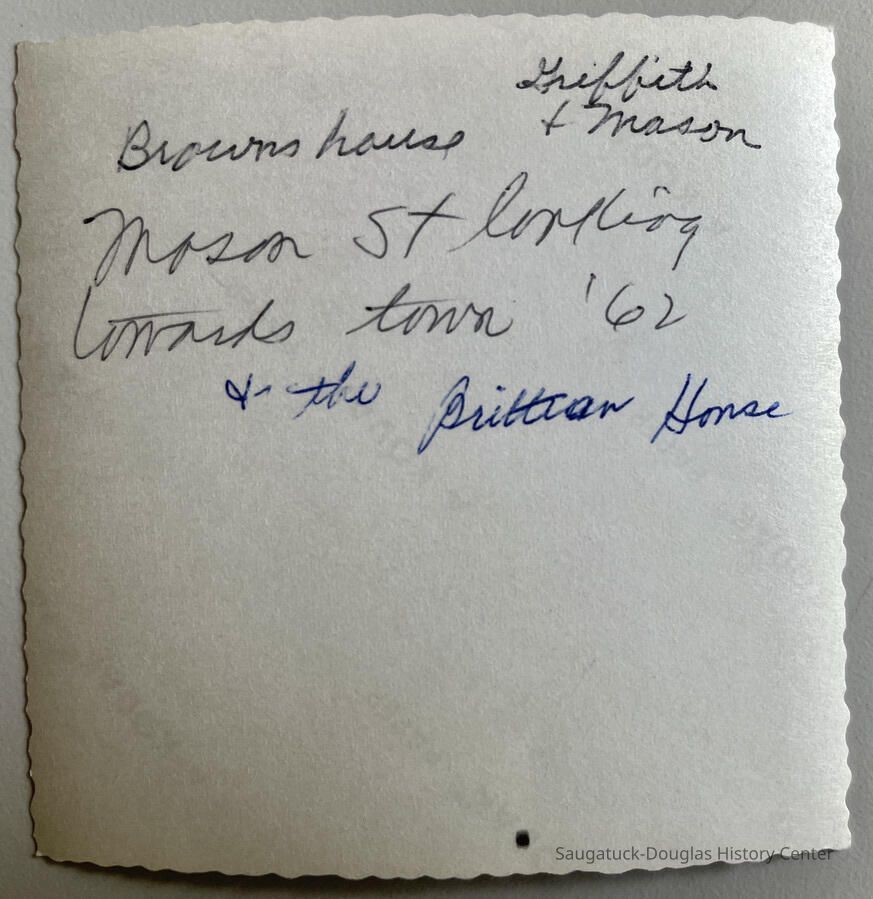 Griffith
Browns house & Mason
Mason St looking
towards town '62
& the Brittian House
Saugatuck-Douglas History Center